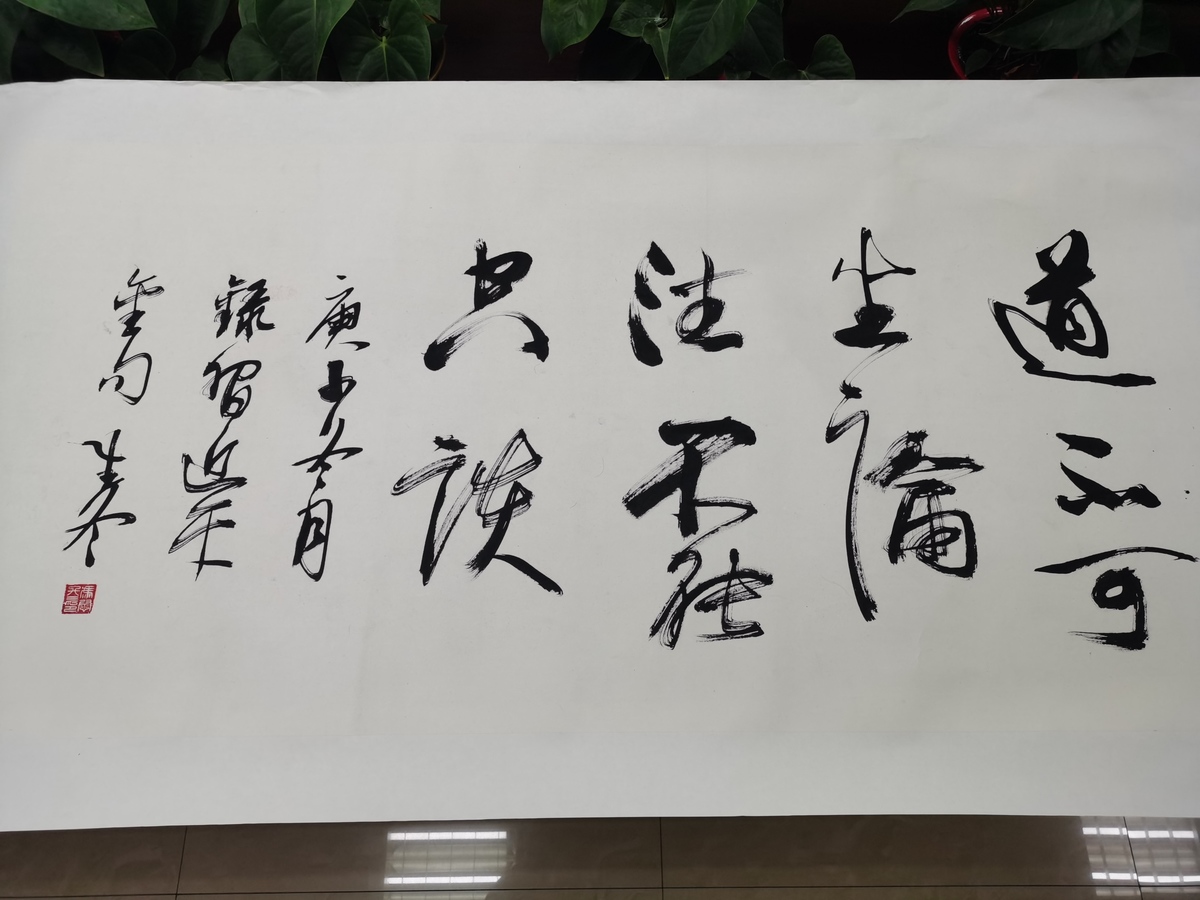 道不可
坐論
德不能
空談
庚子冬月
錄習近平
金句